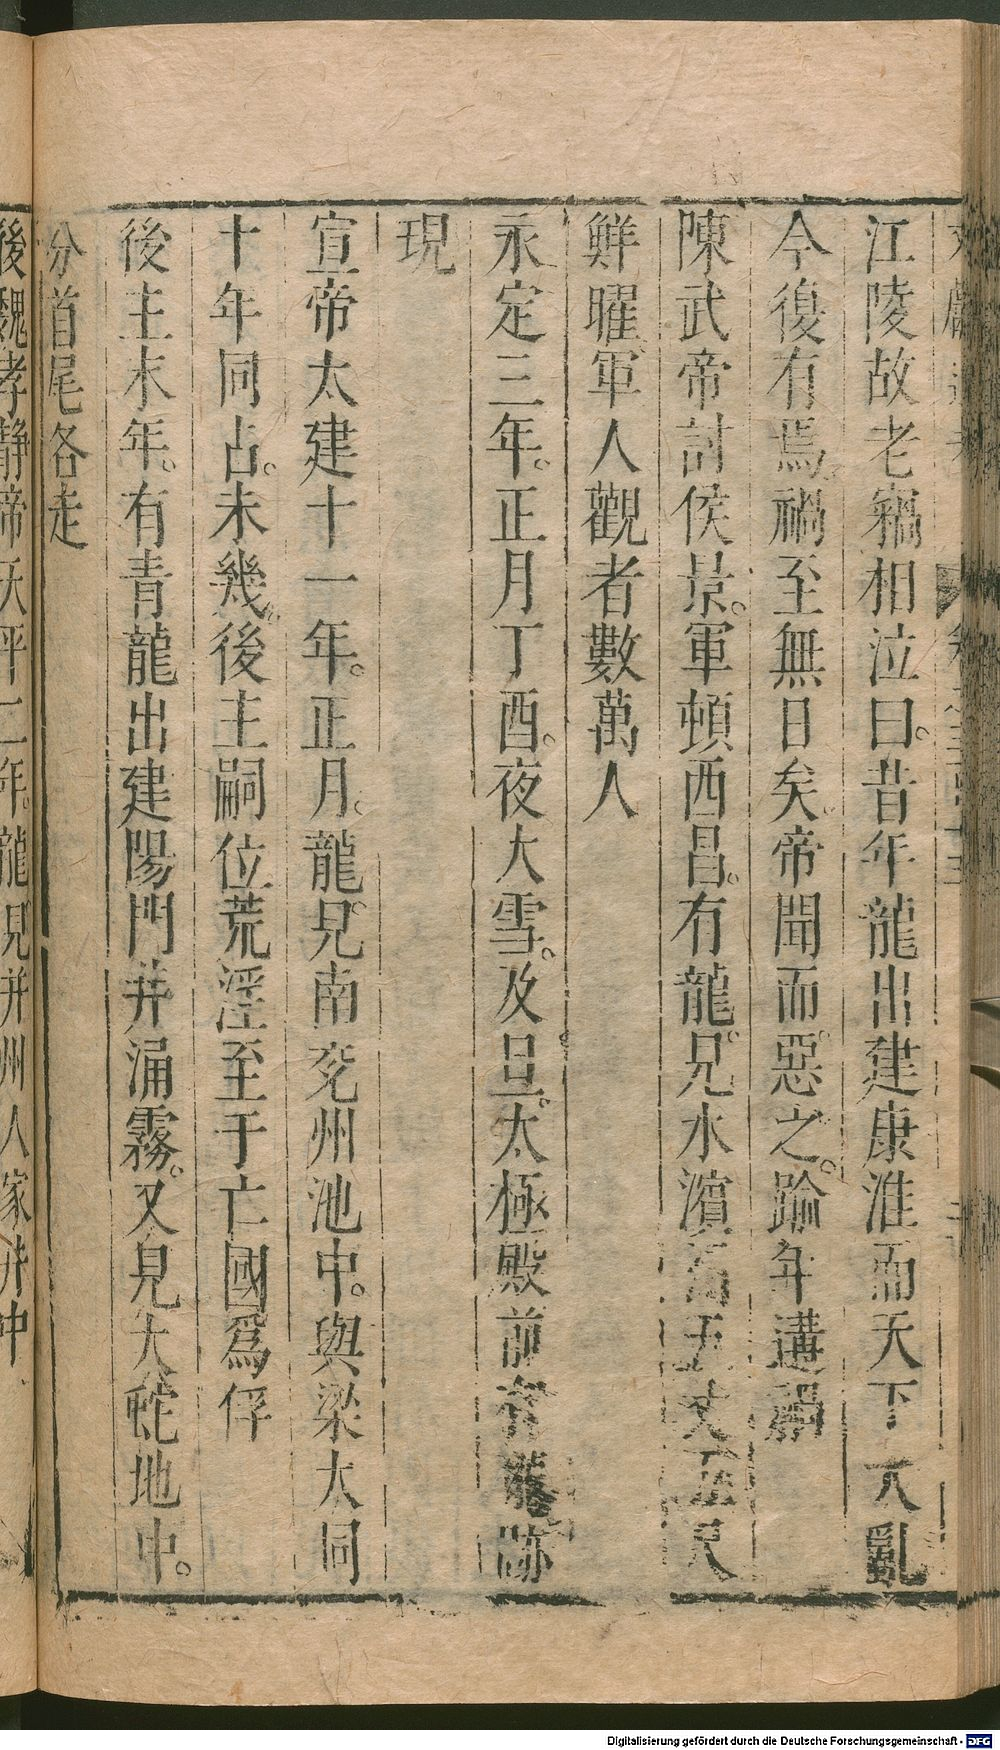 江陵故老竊相泣曰。昔年龍出建康淮而天下大亂
今復有焉禍至無日矣。帝聞而惡之。踰年遘禍
陳武帝討侯景。軍頓西昌。有龍見水濱高五丈五尺
鮮曜軍人觀者數萬人
永定三年。正月丁酉。夜大雪。及旦。太極殿前有龍跡
現
宣帝太建十一年。正月。龍見南兗州池中。與梁大同
十年同占。未幾。後主嗣位荒淫至于亡國爲俘
後主末年。有青龍出建陽門井涌霧。又見大蛇地中。
分首尾各走
後魏孝靜帝天平二年。龍見并州人家井中
Digitalisierung gefördert durch die Deutsche Forschungsgemeinschaft - DFG